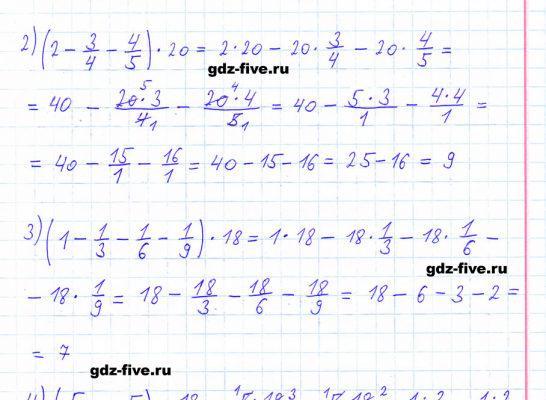 2) (2 - 3/4 - 4/5) · 20 = 2·20 - 20 · 3/4 - 20 · 4/5 =
gdz-five.ru
= 40 - 20·3/4 5 1 - 20·4/5 4 1 = 40 - 5·3/1 - 4·4/1 =
= 40 - 15/1 - 16/1 = 40 - 15 - 16 = 25 - 16 = 9
3) (1 - 1/3 - 1/6 - 1/9) · 18 = 1·18 - 18 · 1/3 - 18 · 1/6 -
gdz-five.ru
- 18 · 1/9 = 18 - 18/3 - 18/6 - 18/9 = 18 - 6 - 3 - 2 =
= 7
gdz-five.ru